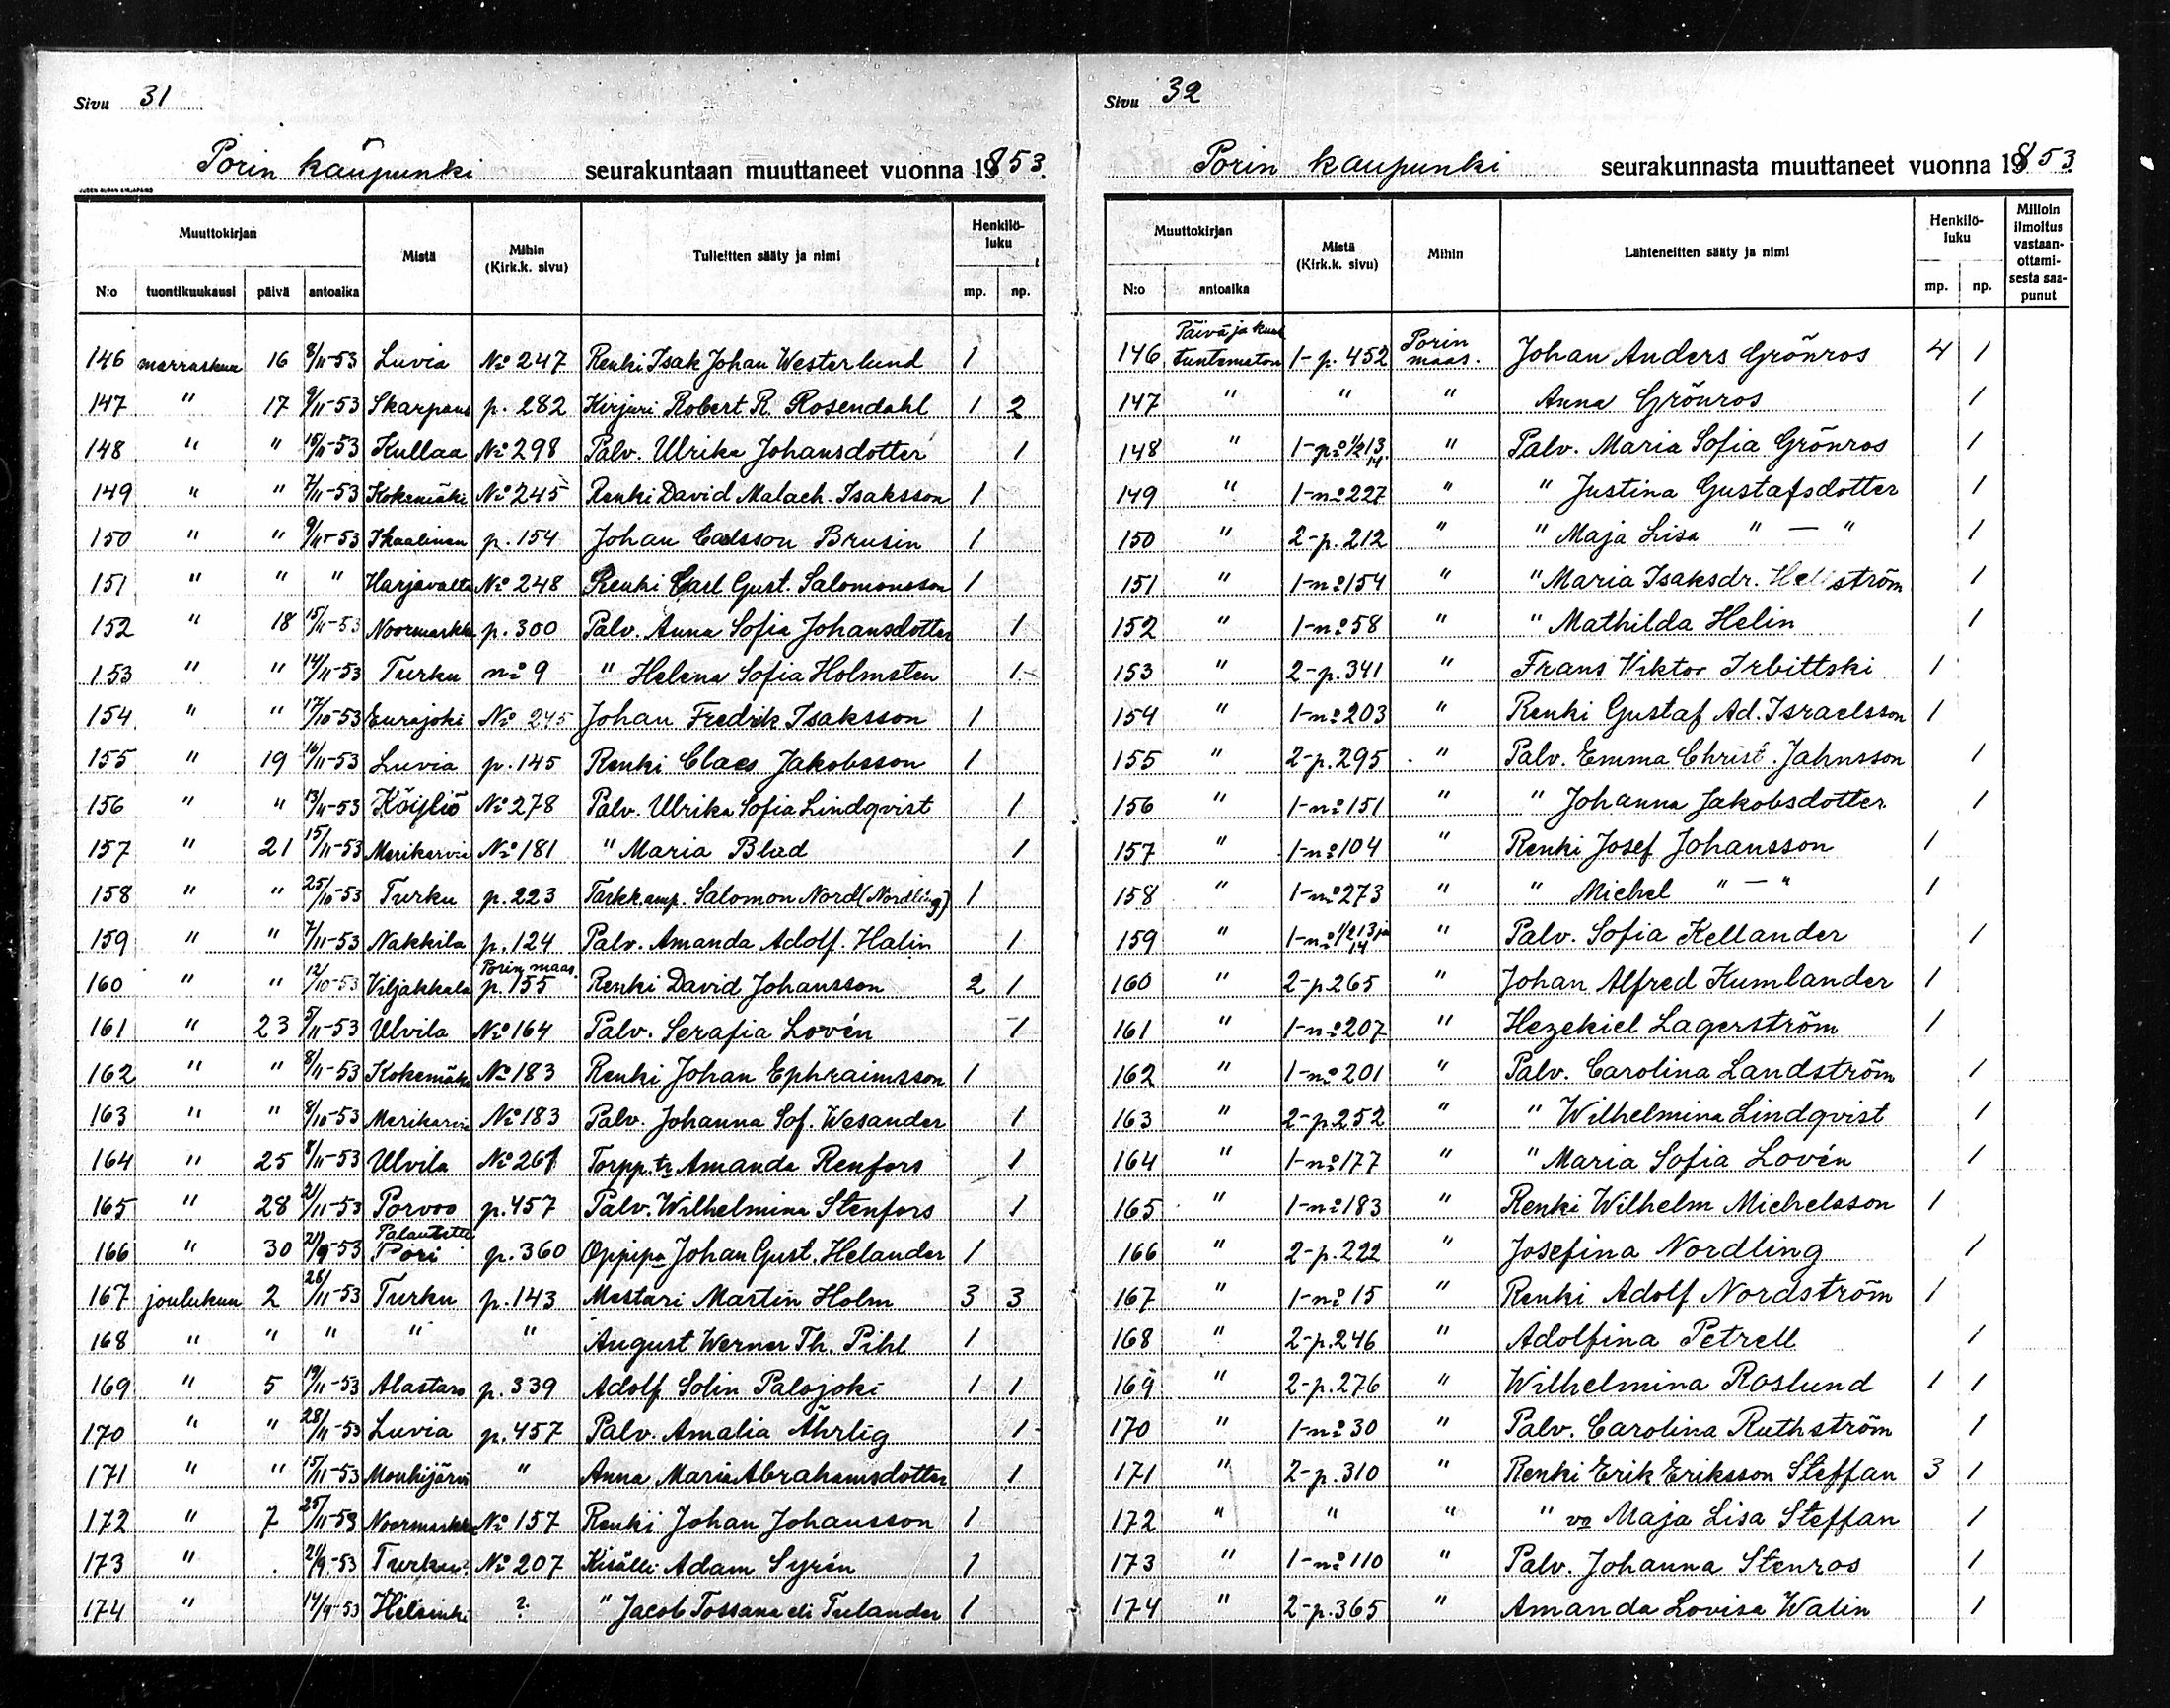 Sivu 31
Porin kaupunki seurakuntaan muuttaneet vuonna 1853.
Muuttokirjan | Mistä | Mihin (Kirk.k. sivu) | Tulleitten sääty ja nimi | Henkilö-luku
N:o | tuontikuukausi | päivä | antoaika | mp. | np.
146 marraskuu 16 8/11-53 Luvia No 247 Renki Isak Johan Westerlund 1
147 " 17 9/11-53 Skarpans p. 282 Kirjuri Robert R. Rosendahl 1 2
148 " " 15/11-53 Kullaa No 298 Palv. Ulrika Johansdotter 1
149 " " 7/11-53 Kokemäki No 245 Renki David Malach. Isaksson 1
150 " " 9/11-53 Ikaalinen p. 154 Johan Carlsson Brusin 1
151 " " " Harjavalta No 248 Renki Carl Gust. Salomonsson 1
152 " 18 15/11-53 Noormarkku p. 300 Palv. Anna Sofia Johansdotter 1
153 " " 14/11-53 Turku no 9 " Helena Sofia Holmsten 1
154 " " 17/10-53 Eurajoki No 245 Johan Fredrik Isaksson 1
155 " 19 16/11-53 Luvia p. 145 Renki Claes Jakobsson 1
156 " " 13/11-53 Köyliö No 278 Palv. Ulrika Sofia Lindqvist 1
157 " 21 15/11-53 Merikarvia No 181 " Maria Blad 1
158 " " 25/10-53 Turku p. 223 Tarkk.amp. Salomon Nord (Nordling) 1
159 " " 7/11-53 Nakkila p. 124 Palv. Amanda Adolf. Halin 1
160 " " 12/10-53 Viljakkala Porin maas. p. 155 Renki David Johansson 2 1
161 " 23 5/11-53 Ulvila No 164 Palv. Serafia Lovén 1
162 " " 8/11-53 Kokemäki No 183 Renki Johan Ephraimsson 1
163 " " 8/10-53 Merikarvia No 183 Palv. Johanna Sof. Wesander 1
164 " 25 8/11-53 Ulvila No 261 Torpp.tr Amanda Renfors 1
165 " 28 21/11-53 Porvoo p. 457 Palv. Wilhelmina Stenfors 1
166 " 30 21/9-53 Palautettu Pori p. 360 Oppipa Johan Gust. Helander 1
167 joulukuu 2 26/11-53 Turku p. 143 Mestari Martin Holm 3 3
168 " " " " " August Werner Th. Pihl 1
169 " 5 19/11-53 Alastaro p. 339 Adolf Solin Palojoki 1 1
170 " " 28/11-53 Luvia p. 457 Palv. Amalia Ährlig 1
171 " " 15/11-53 Mouhijärvi " Anna Maria Abrahamsdotter 1
172 " 7 25/11-53 Noormarkku No 157 Renki Johan Johansson 1
173 " . 21/9-53 Turku? No 207 Kisälli Adam Syrén 1
174 " 14/9-53 Helsinki ? " Jacob Tossana eli Tulander 1
Sivu 32
Porin kaupunki seurakunnasta muuttaneet vuonna 1853
Muuttokirjan | Mistä (Kirk.k. sivu) | Mihin | Lähteneitten sääty ja nimi | Henkilö-luku | Milloin ilmoitus vastaan-ottami-sesta saa-punut
N:o | antoaika | mp. | np.
146 Päivä ja kuuk tuntematon 1-p. 452 Porin maas. Johan Anders Grönros 4 1
147 " " " Anna Grönros 1
148 " 1-no 1/2 13 14 " Palv. Maria Sofia Grönros 1
149 " 1-no 227 " " Justina Gustafsdotter 1
150 " 2-p. 212 " " Maja Lisa " — " 1
151 " 1-no 154 " " Maria Isaksdr. Hellström 1
152 " 1-no 58 " " Mathilda Helin 1
153 " 2-p. 341 " Frans Viktor Irbittski 1
154 " 1-no 203 " Renki Gustaf Ad. Israelsson 1
155 " 2-p. 295 " Palv. Emma Christ. Jahnsson 1
156 " 1-no 151 " " Johanna Jakobsdotter 1
157 " 1-no 104 " Renki Josef Johansson 1
158 " 1-no 273 " " Michel " — " 1
159 " 1-no 1/2 13 ja 14 " Palv. Sofia Kellander 1
160 " 2-p 265 " Johan Alfred Kumlander 1
161 " 1-no 207 " Hezekiel Lagerström 1
162 " 1-no 201 " Palv. Carolina Landström 1
163 " 2-p. 252 " " Wilhelmina Lindqvist 1
164 " 1-no 177 " " Maria Sofia Lovén 1
165 " 1-no 183 " Renki Wilhelm Michelsson 1
166 " 2-p. 222 " Josefina Nordling 1
167 " 1-no 15 " Renki Adolf Nordström 1
168 " 2-p. 246 " Adolfina Petrell 1
169 " 2-p. 276 " Wilhelmina Roslund 1 1
170 " 1-no 30 " Palv. Carolina Ruthström 1
171 " 2-p. 310 " Renki Erik Eriksson Steffan 3 1
172 " " " " va Maja Lisa Steffan 1
173 " 1-no 110 " Palv. Johanna Stenros 1
174 " 2-p. 365 " Amanda Lovisa Walin 1